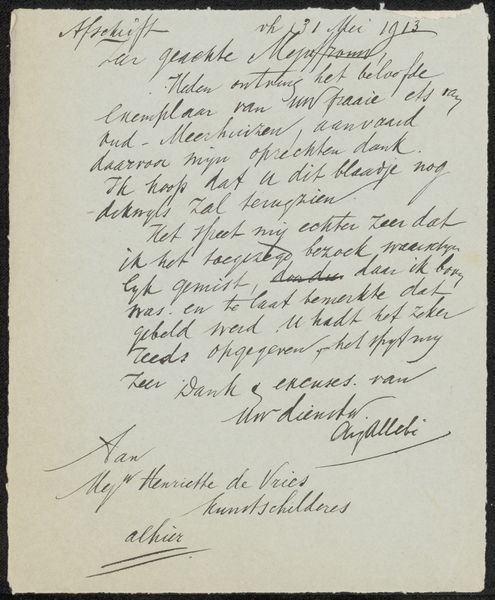 Afschrift vh 31 Mei 1913
zeer geachte Mejuffrouw
Heden ontving het beloofde
exemplaar van uw fraaie ets van
Oud-Meerhuizen, aanvaard
daarvoor mijn oprechten dank.
Ik hoop dat u dit blaadje nog
dikwijls zal terugzien.
Het speet mij echter zeer dat
ik het toegezegd bezoek waarschijn
lyk gemist, daar ik boven
was. en te laat bemerkte dat
gebeld werd u hadt het zeker
reeds opgegeven, het spyt my
zeer Dank & excuses. van
Uw dienstw
Aug Allebé
Aan
Mejw Henriette de Vries
Kunstschilderes
alhier